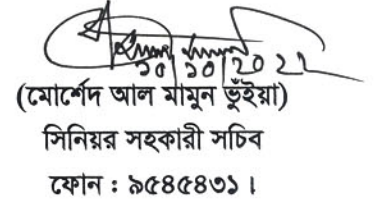 ১০/১০/2022
(মোর্শেদ আল মামুন ভূঁইয়া)
সিনিয়র সহকারী সচিব
ফোন : ৯৫৪৫৪৩১।